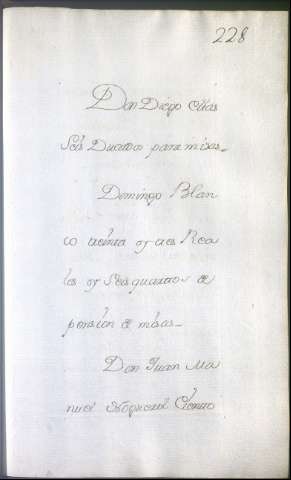 228
Don Diego Mas
Seis Ducados para misas_
Domingo Blan
co treinta y tres Rea
les y Seis quartos de
pension de misas_
Don Juan Ma
nuel Ciento